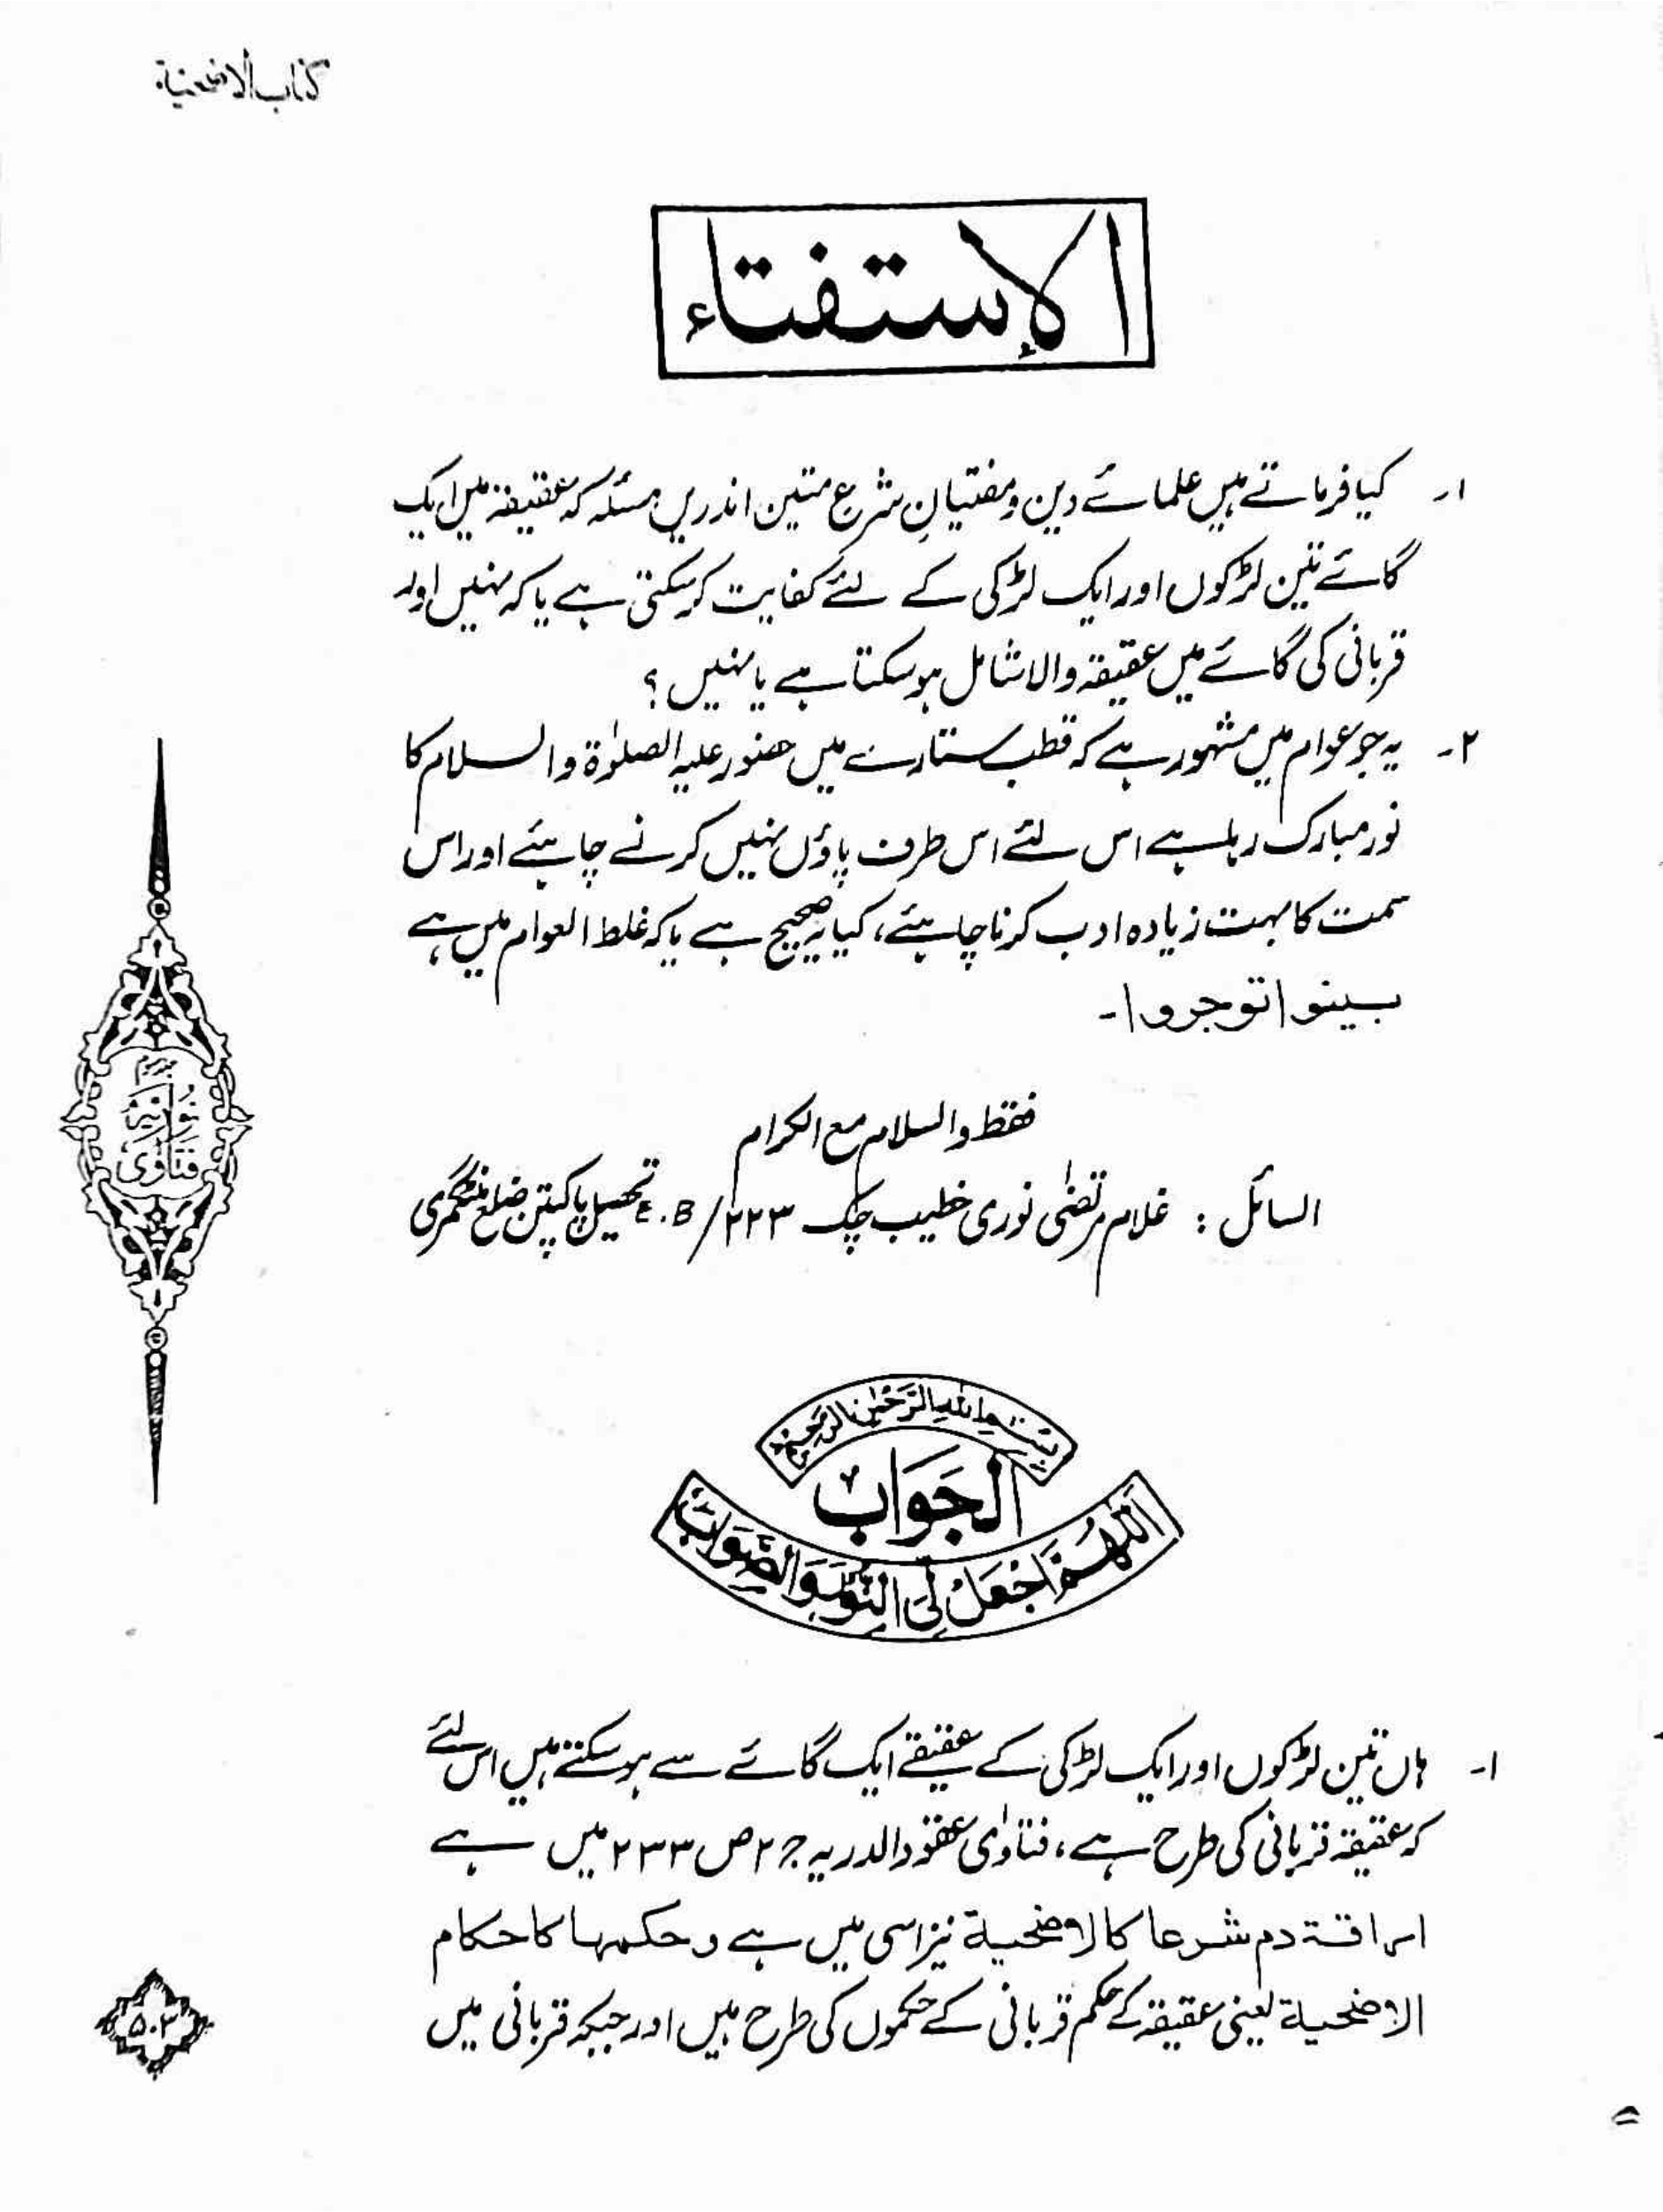 کتاب الاضحیۃ
الإستفتاء
۱۔ کیا فرماتے ہیں علمائے دین و مفتیانِ شرع متین اندریں مسئلہ کہ عقیقہ میں ایک
گائے تین لڑکوں اور ایک لڑکی کے لئے کفایت کرسکتی ہے یا کہ نہیں اور
قربانی کی گائے میں عقیقہ والا شامل ہوسکتا ہے یا نہیں ؟
۲۔ یہ جو عوام میں مشہور ہے کہ قطب ستارے میں حضور علیہ الصلوٰۃ والسلام کا
نور مبارک رہا ہے اس لئے اس طرف پاؤں نہیں کرنے چاہئے اور اس
سمت کا بہت زیادہ ادب کرنا چاہئے، کیا یہ صحیح ہے یا کہ غلط العوام میں ہے
بینوا توجروا۔
فقط والسلام مع الکرام
السائل : غلام مرتضیٰ نوری خطیب چک ۲۲۳/E.B تحصیل پاکپتن ضلع منٹگمری
فتاویٰ نوریہ
بسم الله الرحمن الرحیم
الجواب
اللهم اجعل لی النور والصواب
۱۔ ہاں تین لڑکوں اور ایک لڑکی کے عقیقے ایک گائے سے ہوسکتے ہیں اس لئے
کہ عقیقہ قربانی کی طرح ہے، فتاوٰی عقود الدریہ ج ۲ ص ۲۳۳ میں ہے
اراقة دم شرعا کالاضحیة نیز اسی میں ہے و حکمہا کاحکام
الاضحیة یعنی عقیقہ کے حکم قربانی کے حکموں کی طرح ہیں اور جبکہ قربانی میں
۵۰۳